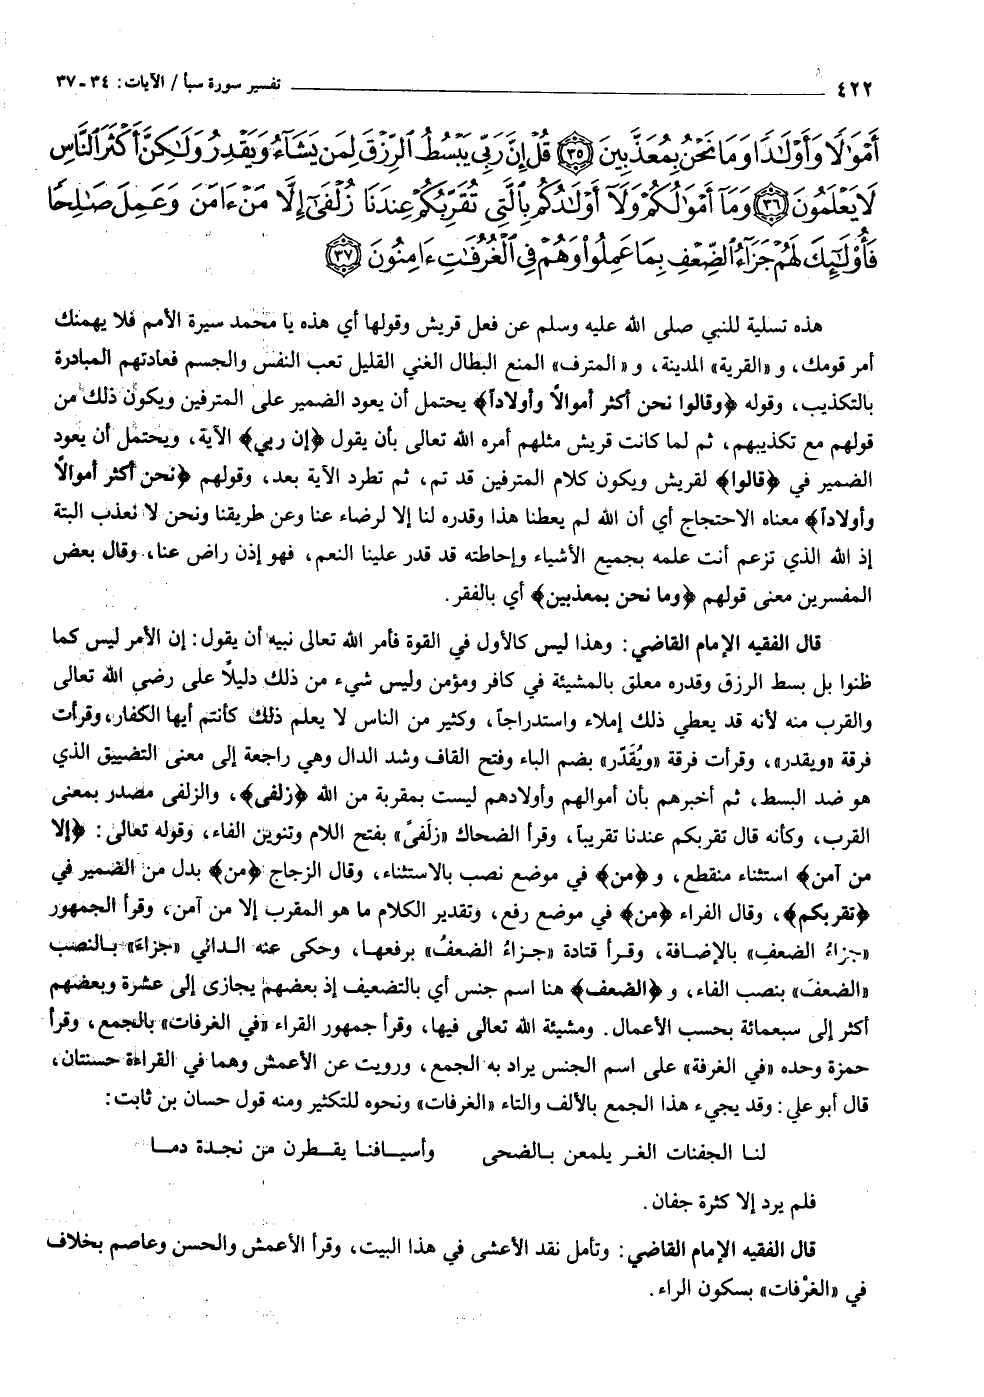 ٤٢٢ تفسير سورة سبأ / الآيات: ٣٤ ـ ٣٧
أَمْوَٰلًا وَأَوْلَٰدًا وَمَا نَحْنُ بِمُعَذَّبِينَ ﴿٣٥﴾ قُلْ إِنَّ رَبِّي يَبْسُطُ ٱلرِّزْقَ لِمَن يَشَآءُ وَيَقْدِرُ وَلَٰكِنَّ أَكْثَرَ ٱلنَّاسِ
لَا يَعْلَمُونَ ﴿٣٦﴾ وَمَآ أَمْوَٰلُكُمْ وَلَآ أَوْلَٰدُكُم بِٱلَّتِي تُقَرِّبُكُمْ عِندَنَا زُلْفَىٰٓ إِلَّا مَنْ ءَامَنَ وَعَمِلَ صَٰلِحًا
فَأُو۟لَٰٓئِكَ لَهُمْ جَزَآءُ ٱلضِّعْفِ بِمَا عَمِلُوا۟ وَهُمْ فِي ٱلْغُرُفَٰتِ ءَامِنُونَ ﴿٣٧﴾
هذه تسلية للنبي صلى الله عليه وسلم عن فعل قريش وقولها أي هذه يا محمد سيرة الأمم فلا يهمنك
أمر قومك، و «القرية» المدينة، و «المترف» المنع البطال الغني القليل تعب النفس والجسم فعادتهم المبادرة
بالتكذيب، وقوله ﴿وقالوا نحن أكثر أموالاً وأولاداً﴾ يحتمل أن يعود الضمير على المترفين ويكون ذلك من
قولهم مع تكذيبهم، ثم لما كانت قريش مثلهم أمره الله تعالى بأن يقول ﴿إن ربي﴾ الآية، ويحتمل أن يعود
الضمير في ﴿قالوا﴾ لقريش ويكون كلام المترفين قد تم، ثم تطرد الآية بعد، وقولهم ﴿نحن أكثر أموالاً
وأولاداً﴾ معناه الاحتجاج أي أن الله لم يعطنا هذا وقدره لنا إلا لرضاء عنا وعن طريقنا ونحن لا نعذب البتة
إذ الله الذي تزعم أنت علمه بجميع الأشياء وإحاطته قد قدر علينا النعم، فهو إذن راض عنا، وقال بعض
المفسرين معنى قولهم ﴿وما نحن بمعذبين﴾ أي بالفقر.
قال الفقيه الإمام القاضي: وهذا ليس كالأول في القوة فأمر الله تعالى نبيه أن يقول: إن الأمر ليس كما
ظنوا بل بسط الرزق وقدره معلق بالمشيئة في كافر ومؤمن وليس شيء من ذلك دليلاً على رضي الله تعالى
والقرب منه لأنه قد يعطي ذلك إملاء واستدراجاً، وكثير من الناس لا يعلم ذلك كأنتم أيها الكفار، وقرأت
فرقة «ويقدر»، وقرأت فرقة «ويُقَدّر» بضم الباء وفتح القاف وشد الدال وهي راجعة إلى معنى التضييق الذي
هو ضد البسط، ثم أخبرهم بأن أموالهم وأولادهم ليست بمقربة من الله ﴿زلفى﴾، والزلفى مصدر بمعنى
القرب، وكأنه قال تقربكم عندنا تقريباً، وقرأ الضحاك «زلَفىً» بفتح اللام وتنوين الفاء، وقوله تعالى: ﴿إلا
من آمن﴾ استثناء منقطع، و ﴿من﴾ في موضع نصب بالاستثناء، وقال الزجاج ﴿من﴾ بدل من الضمير في
﴿تقربكم﴾، وقال الفراء ﴿من﴾ في موضع رفع، وتقدير الكلام ما هو المقرب إلا من آمن، وقرأ الجمهور
«جزاءُ الضعفِ» بالإضافة، وقرأ قتادة «جزاءُ الضعفُ» برفعها، وحكى عنه الداني «جزاءَ» بالنصب
«الضعفَ» بنصب الفاء، و ﴿الضعف﴾ هنا اسم جنس أي بالتضعيف إذ بعضهم يجازى إلى عشرة وبعضهم
أكثر إلى سبعمائة بحسب الأعمال. ومشيئة الله تعالى فيها، وقرأ جمهور القراء «في الغرفات» بالجمع، وقرأ
حمزة وحده «في الغرفة» على اسم الجنس يراد به الجمع، ورويت عن الأعمش وهما في القراءة حسنتان،
قال أبو علي: وقد يجيء هذا الجمع بالألف والتاء «الغرفات» ونحوه للتكثير ومنه قول حسان بن ثابت:
لنا الجفنات الغر يلمعن بالضحى وأسيافنا يقطرن من نجدة دما
فلم يرد إلا كثرة جفان.
قال الفقيه الإمام القاضي: وتأمل نقد الأعشى في هذا البيت، وقرأ الأعمش والحسن وعاصم بخلاف
في «الغرْفات» بسكون الراء.